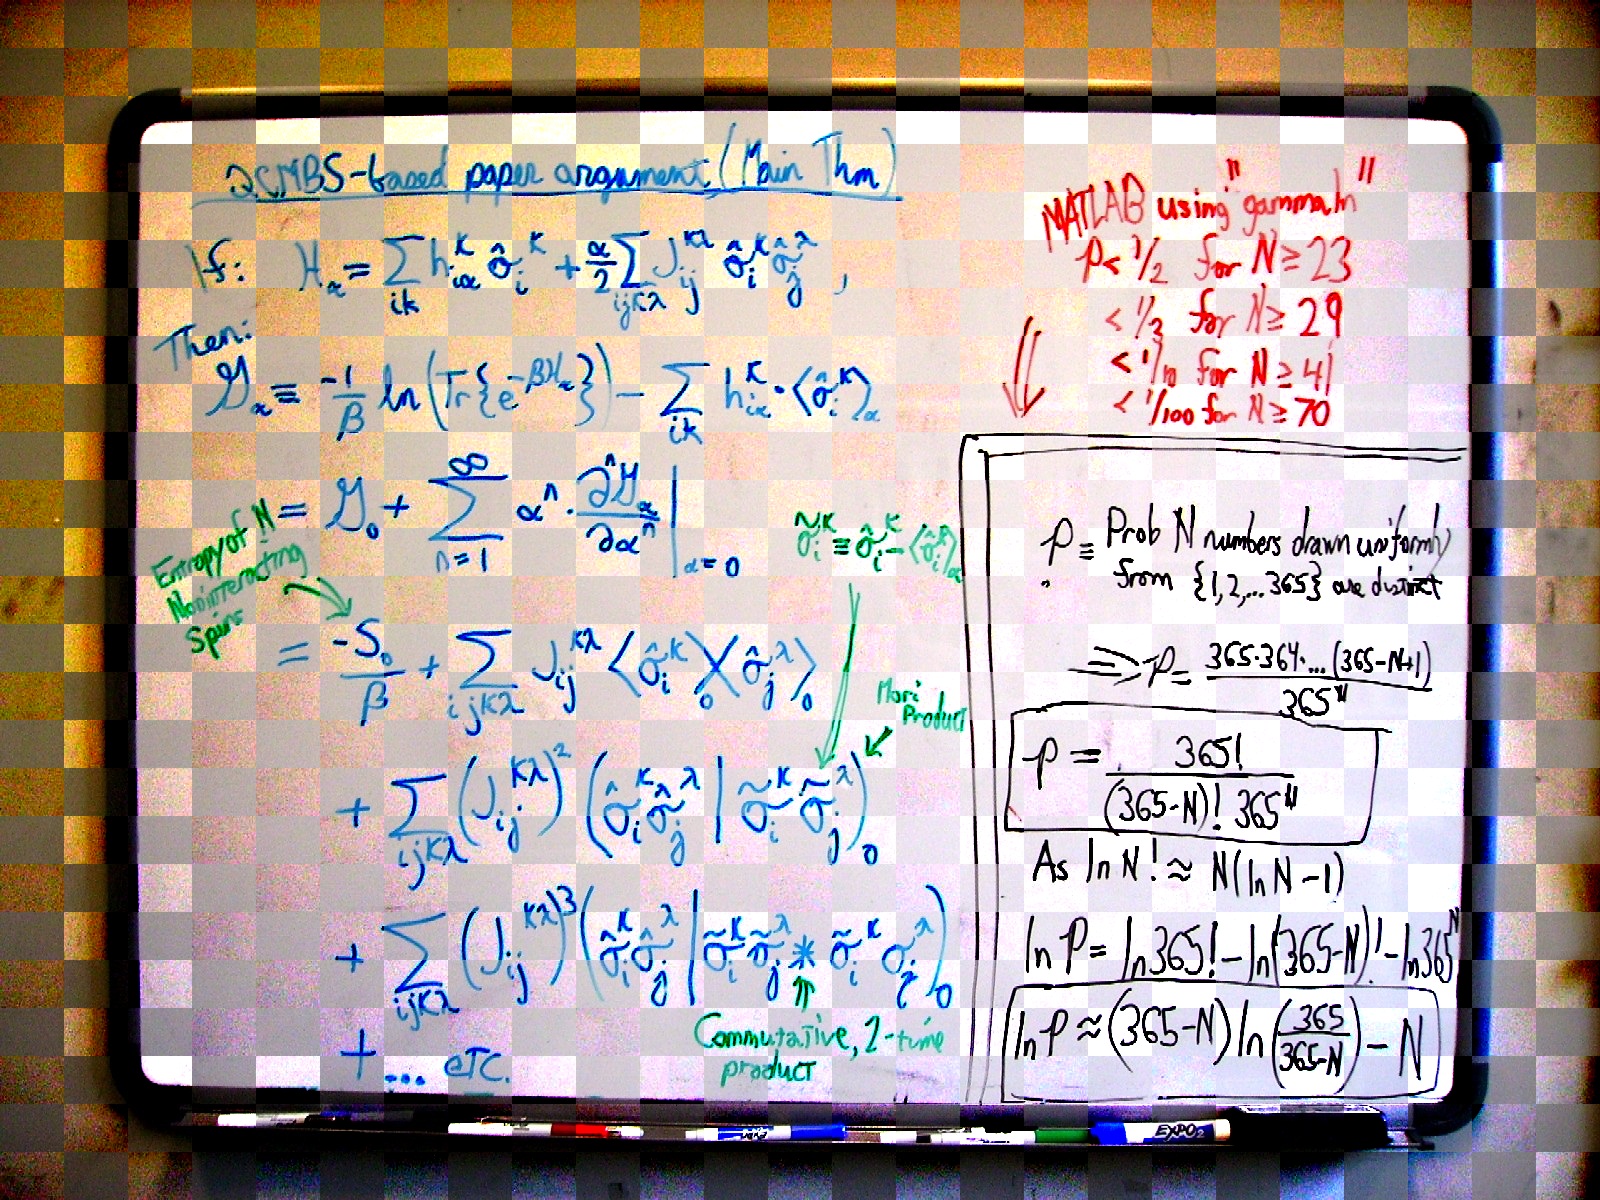 QCMBS-based paper argument (Main Thm)
If: H_α = Σ_{iκ} h_{iα}^κ σ̂_i^κ + α/2 Σ_{ijκλ} J_{ij}^{κλ} σ̂_i^κ σ̂_j^λ ,
Then:
G_α ≡ -1/β ln(Tr{e^{-βH_α}}) - Σ_{iκ} h_{iα}^κ · ⟨σ̂_i^κ⟩_α
= G_0 + Σ_{n=1}^∞ α^n · ∂^n G_α / ∂α^n |_{α=0}
Entropy of N
Noninteracting
Spins
σ̃_i^κ ≡ σ̂_i^κ - ⟨σ̂_i^κ⟩_α
= -S_0/β + Σ_{ijκλ} J_{ij}^{κλ} ⟨σ̂_i^κ⟩_0 ⟨σ̂_j^λ⟩_0
Mori
Product
+ Σ_{ijκλ} (J_{ij}^{κλ})^2 (σ̂_i^κ σ̂_j^λ | σ̃_i^κ σ̃_j^λ)_0
+ Σ_{ijκλ} (J_{ij}^{κλ})^3 (σ̂_i^κ σ̂_j^λ | σ̃_i^κ σ̃_j^λ * σ̃_i^κ σ_j^λ)_0
Commutative, 2-time
product
+ ... etc.
MATLAB using "gammaln"
p < 1/2 for N ≥ 23
< 1/3 for N ≥ 29
< 1/10 for N ≥ 41
< 1/100 for N ≥ 70
p ≡ Prob N numbers drawn uniformly
from {1,2,...365} are distinct
⟹ p = 365·364·...(365-N+1) / 365^N
p = 365! / (365-N)! 365^N
As ln N! ≈ N(ln N - 1)
ln p = ln 365! - ln(365-N)! - ln 365^N
ln p ≈ (365-N) ln(365/(365-N)) - N
EXPO 2